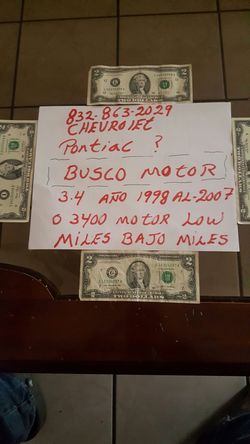 832-863-2029
CHEVROLET
Pontiac ?
BUSCO MOTOR
3.4 AÑO 1998 AL-2007
O 3400 MOTOR LOW
MILES BAJO MILES